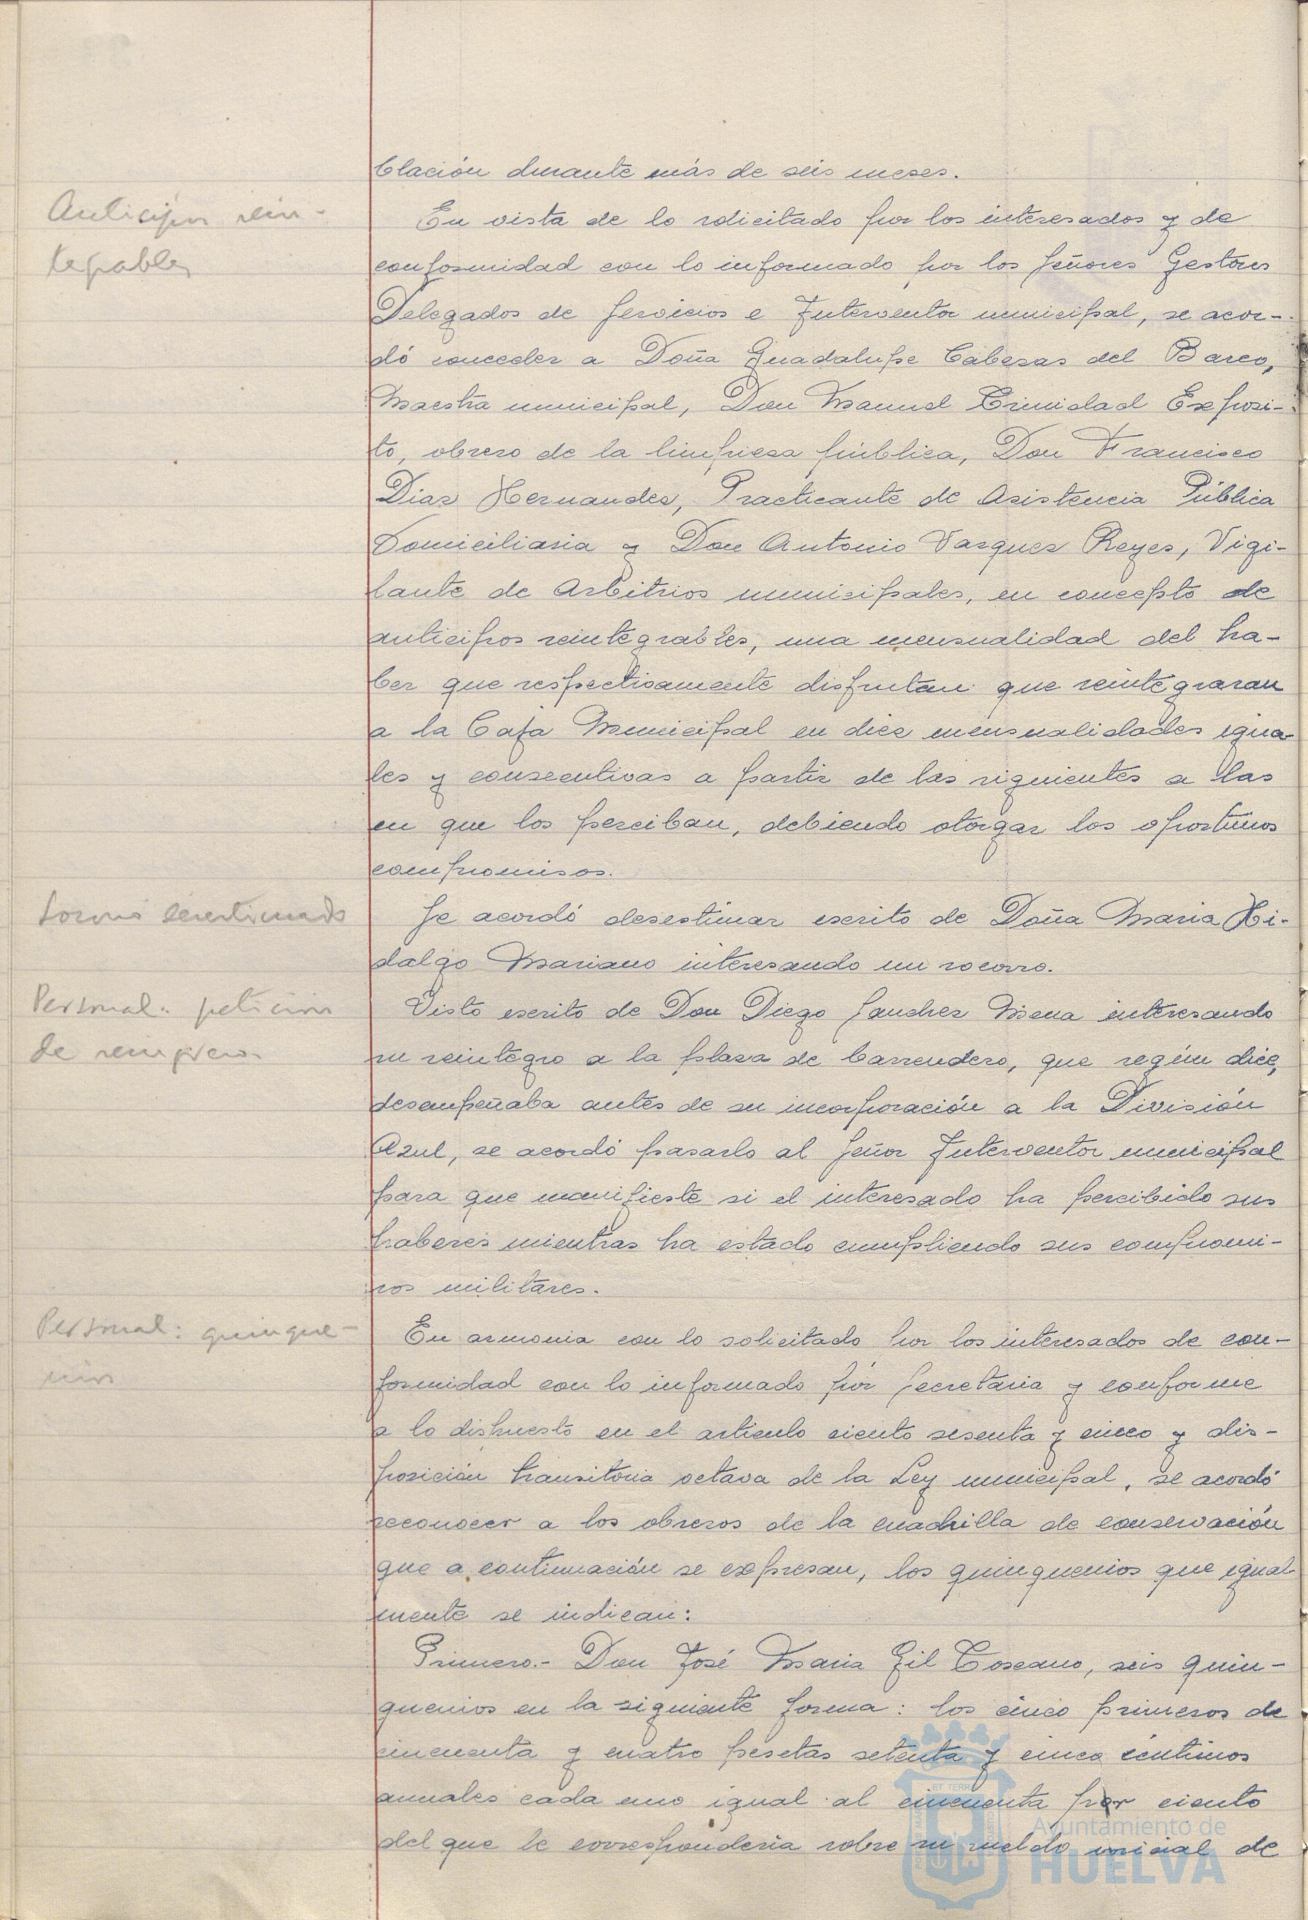 blación durante más de seis meses.
Anticipos rein-
tegrables
En vista de lo solicitado por los interesados y de
conformidad con lo informado por los señores Gestores
Delegados de Servicios e Interventor municipal, se acor-
dó conceder a Doña Guadalupe Cabezas del Barco,
Maestra municipal, Don Manuel Trinidad Expósi-
to, obrero de la limpieza pública, Don Francisco
Diaz Hernandez, Practicante de Asistencia Pública
Domiciliaria y Don Antonio Vazquez Reyes, Vigi-
lante de Arbitrios municipales, en concepto de
anticipos reintegrables, una mensualidad del ha-
ber que respectivamente disfrutan que reintegraran
a la Caja Municipal en diez mensualidades igua-
les y consecutivas a partir de las siguientes a las
en que los perciban, debiendo otorgar los oportunos
compromisos.
Socorro desestimado
Se acordó desestimar escrito de Doña Maria Hi-
dalgo Mariano interesando un socorro.
Personal: petición
de reingreso.
Visto escrito de Don Diego Sanchez Mena interesando
su reintegro a la plaza de barrendero, que según dice,
desempeñaba antes de su incorporación a la División
Azul, se acordó pasarlo al Señor Interventor municipal
para que manifieste si el interesado ha percibido sus
haberes mientras ha estado cumpliendo sus compromi-
sos militares.
Personal: quinque-
nios
En armonia con lo solicitado por los interesados de con-
formidad con lo informado por Secretaria y conforme
a lo dispuesto en el articulo ciento sesenta y cinco y dis-
posición transitoria octava de la Ley municipal, se acordó
reconocer a los obreros de la cuadrilla de conservación
que a continuación se expresan, los quinquenios que igual
mente se indican:
Primero.- Don José Maria Gil Toscano, seis quin-
quenios en la siguiente forma: los cinco primeros de
cincuenta y cuatro pesetas setenta y cinco centimos
anuales cada uno igual al cincuenta por ciento
del que le corresponderia sobre su sueldo inicial de
Ayuntamiento de
HUELVA